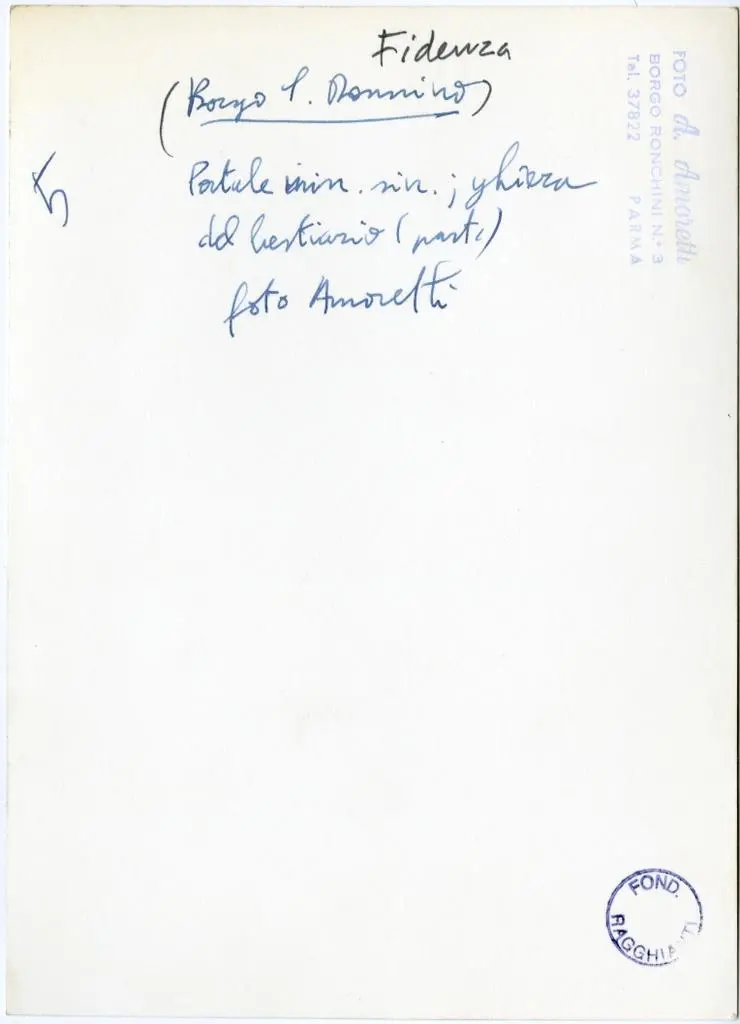 Fidenza
(Borgo S. Donnino)
5
Portale min. sin.; ghiera
del bestiario (part.)
foto Amoretti
FOTO A. Amoretti
BORGO RONCHINI N.° 3
Tel. 37822 PARMA
FOND.
RAGGHIANTI